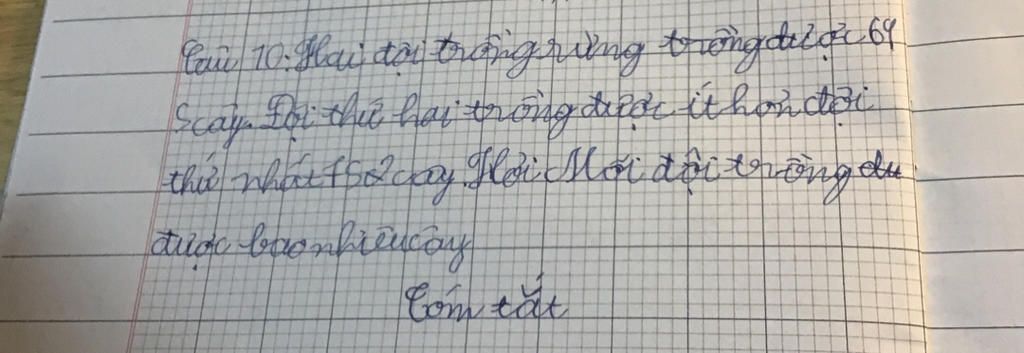 Câu 10: Hai đội trồng rừng trồng được 64
5 cây. Đội thứ hai trồng được ít hơn đội
thứ nhất 152 cây Hỏi Mỗi đội trồng đư
được bao nhiêu cây
Tóm tắt